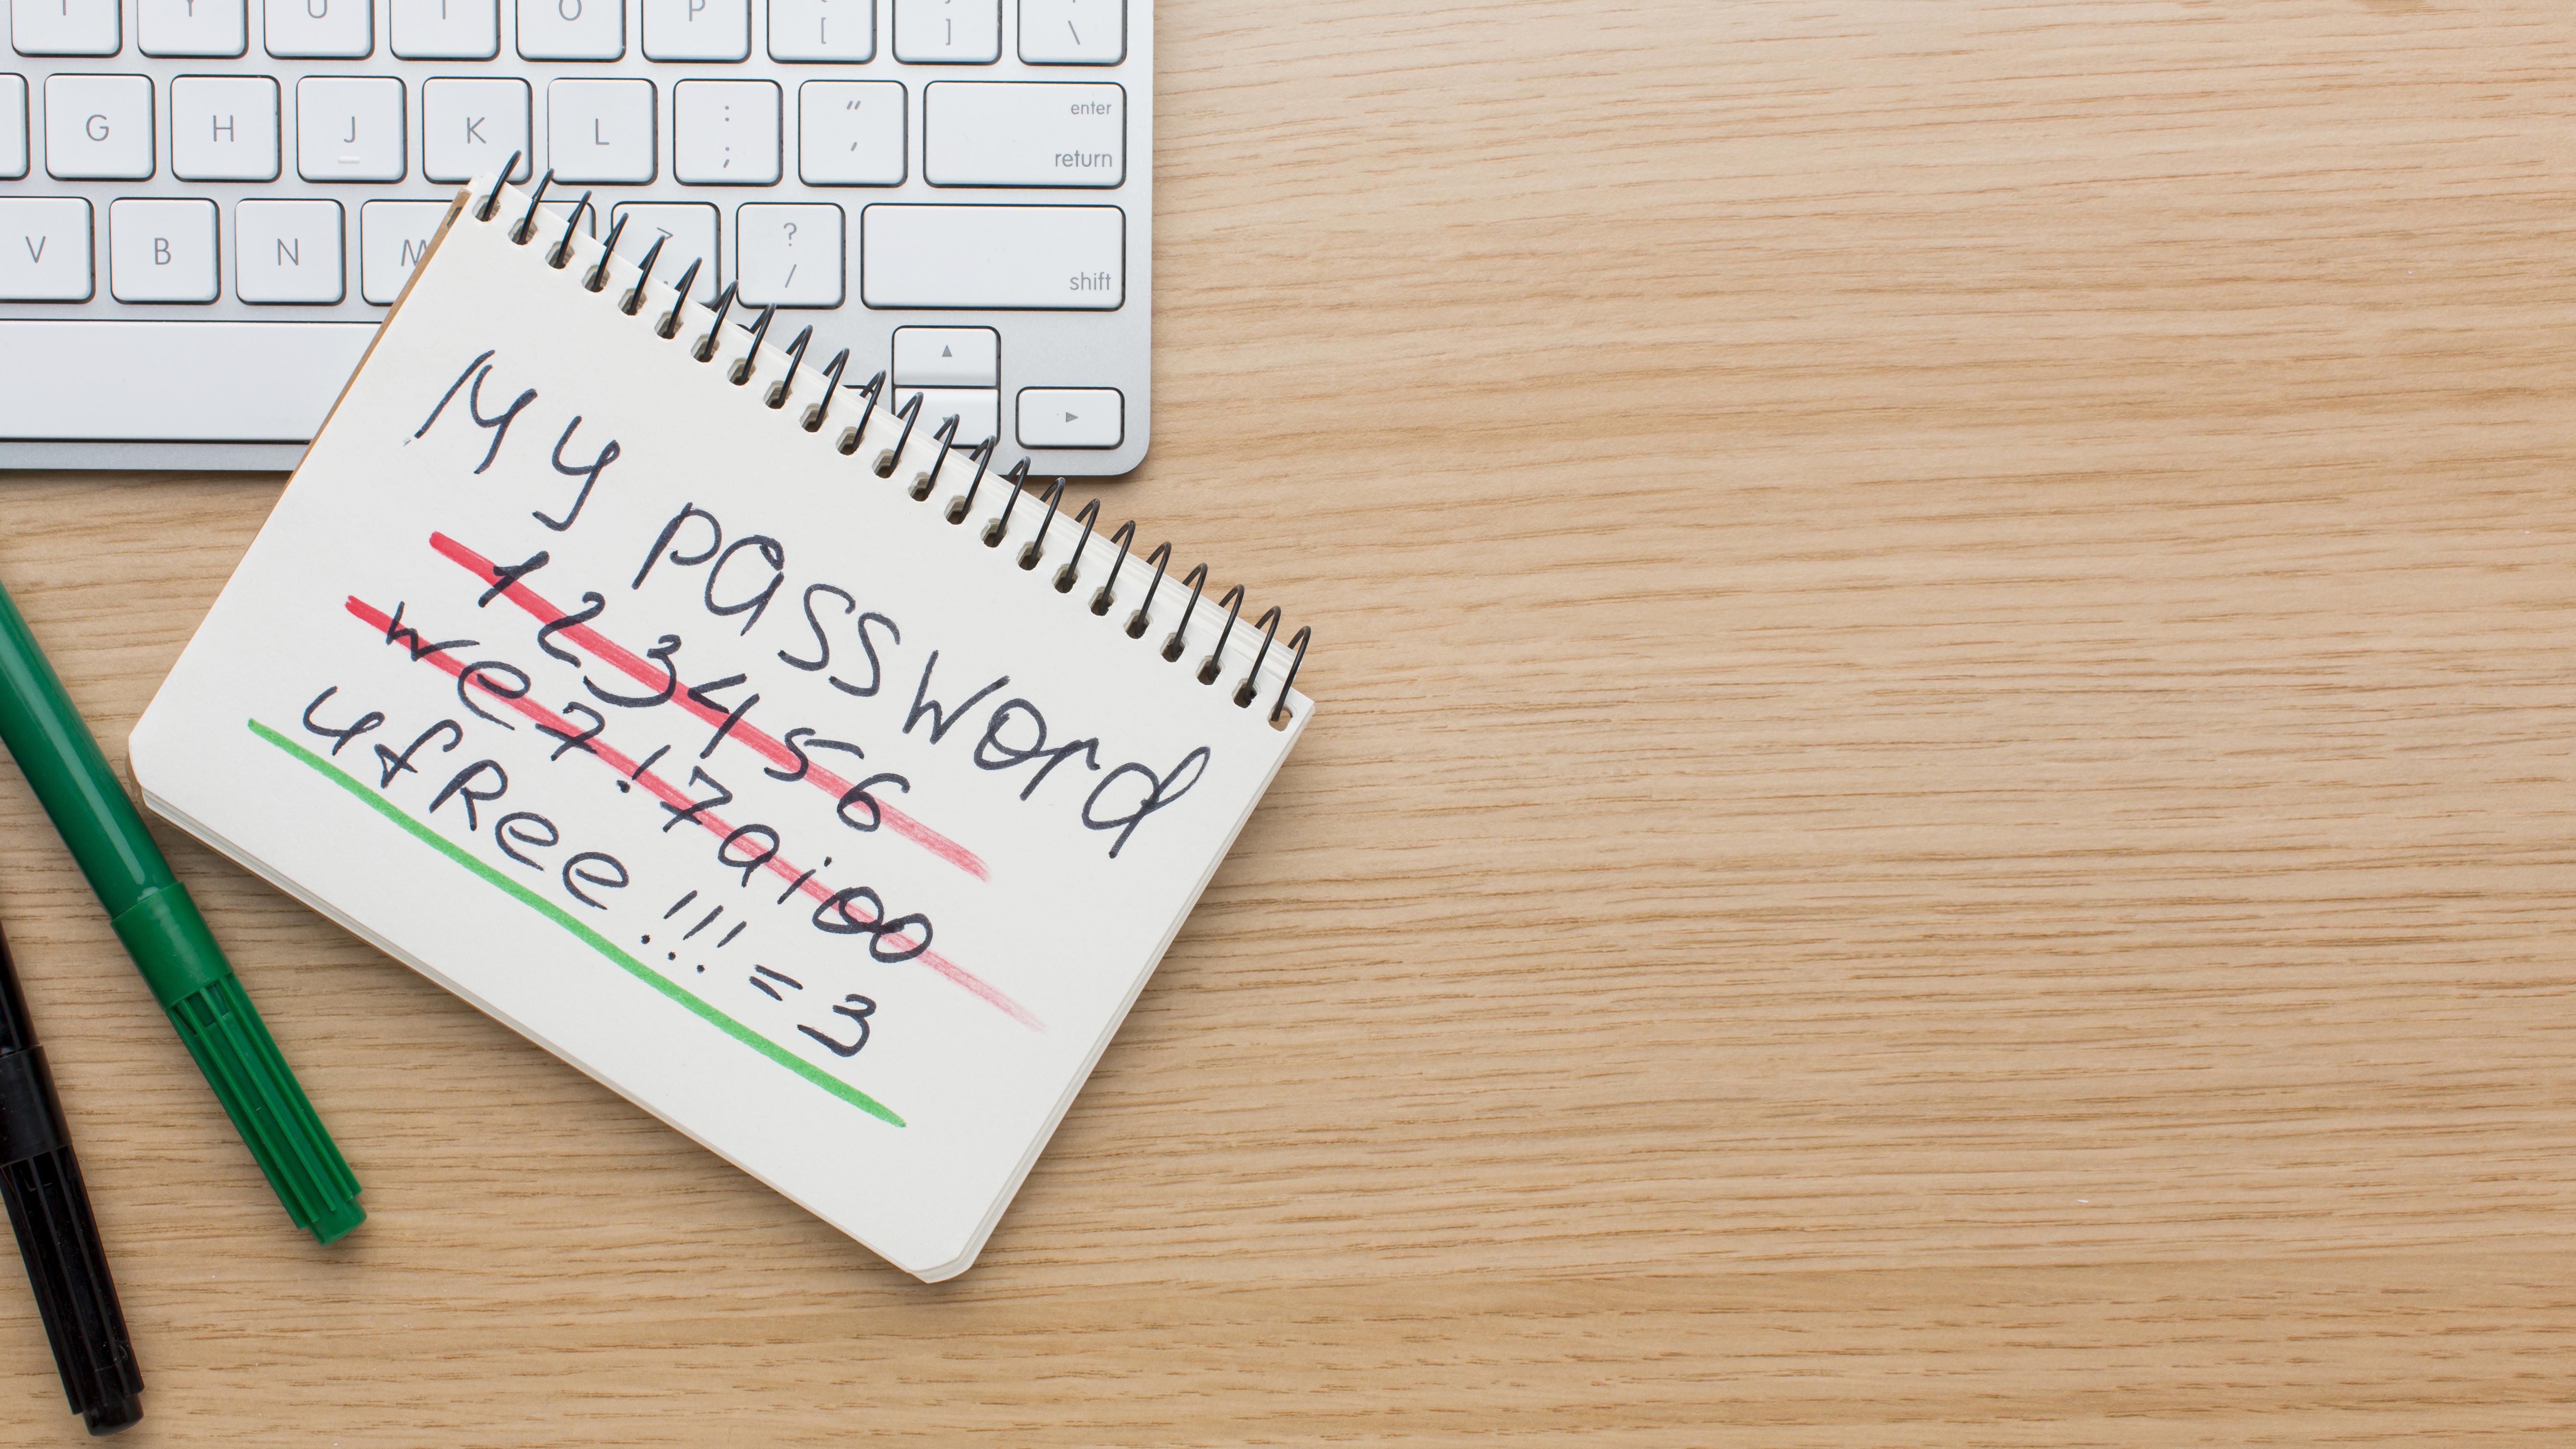 T Y U I O P [ ] \
G H J K L : ; " ' enter return
V B N M > ? / shift
My password
123456
we7!7aioo
4fRee!!!=3